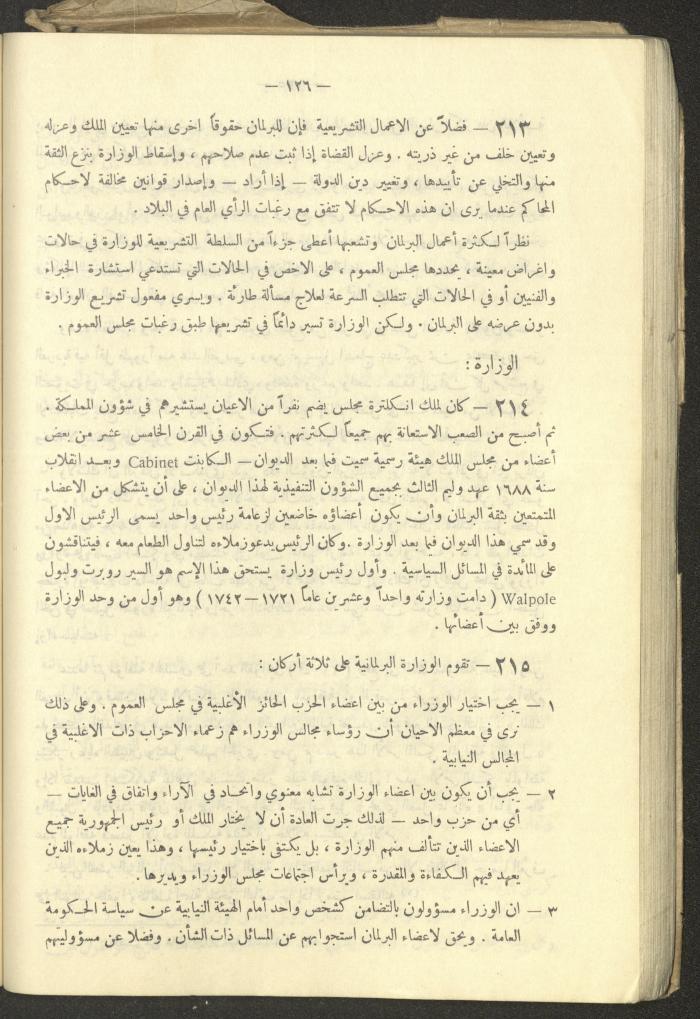 — ١٢٦ —
٢١٣ — فضلاً عن الاعمال التشريعية فإن للبرلمان حقوقاً اخرى منها تعيين الملك وعزله
وتعيين خلف من غير ذريته . وعزل القضاة إذا ثبت عدم صلاحهم ، وإسقاط الوزارة بنزع الثقة
منها والتخلي عن تأييدها ، وتغيير دين الدولة — إذا أراد — وإصدار قوانين مخالفة لاحكام
المحاكم عندما يرى ان هذه الاحكام لا تتفق مع رغبات الرأي العام في البلاد .
نظراً لكثرة أعمال البرلمان وتشعبها أعطى جزءاً من السلطة التشريعية للوزارة في حالات
واغراض معينة ، يحددها مجلس العموم ، على الاخص في الحالات التي تستدعي استشارة الخبراء
والفنيين أو في الحالات التي تتطلب السرعة لعلاج مسألة طارئة . ويسري مفعول تشريع الوزارة
بدون عرضه على البرلمان . ولكن الوزارة تسير دائماً في تشريعها طبق رغبات مجلس العموم .
الوزارة :
٢١٤ — كان لملك انكلترة مجلس يضم نفراً من الاعيان يستشيرهم في شؤون المملكة .
ثم أصبح من الصعب الاستعانة بهم جميعاً لكثرتهم . فتكون في القرن الخامس عشر من بعض
أعضاء من مجلس الملك هيئة رسمية سميت فيما بعد الديوان — الكابنت Cabinet وبعد انقلاب
سنة ١٦٨٨ عهد وليم الثالث بجميع الشؤون التنفيذية لهذا الديوان ، على أن يتشكل من الاعضاء
المتمتعين بثقة البرلمان وأن يكون أعضاؤه خاضعين لزعامة رئيس واحد يسمى الرئيس الاول
وقد سمي هذا الديوان فيما بعد الوزارة . وكان الرئيس يدعو زملاءه لتناول الطعام معه ، فيتناقشون
على المائدة في المسائل السياسية . وأول رئيس وزارة يستحق هذا الإسم هو السير روبرت ولبول
Walpole ( دامت وزارته واحداً وعشرين عاماً ١٧٢١ — ١٧٤٢ ) وهو أول من وحد الوزارة
ووفق بين أعضائها .
٢١٥ — تقوم الوزارة البرلمانية على ثلاثة أركان :
١ — يجب اختيار الوزراء من بين اعضاء الحزب الحائز الأغلبية في مجلس العموم . وعلى ذلك
نرى في معظم الاحيان أن رؤساء مجالس الوزراء هم زعماء الاحزاب ذات الاغلبية في
المجالس النيابية .
٢ — يجب أن يكون بين اعضاء الوزارة تشابه معنوي واتحاد في الآراء واتفاق في الغايات —
أي من حزب واحد — لذلك جرت العادة أن لا يختار الملك أو رئيس الجمهورية جميع
الاعضاء الذين تتألف منهم الوزارة ، بل يكتفى باختيار رئيسها ، وهذا يعين زملاءه الذين
يعهد فيهم الكفاءة والمقدرة ، ويرأس اجتماعات مجلس الوزراء ويديرها .
٣ — ان الوزراء مسؤولون بالتضامن كشخص واحد أمام الهيئة النيابية عن سياسة الحكومة
العامة . ويحق لاعضاء البرلمان استجوابهم عن المسائل ذات الشأن . وفضلا عن مسؤوليتهم